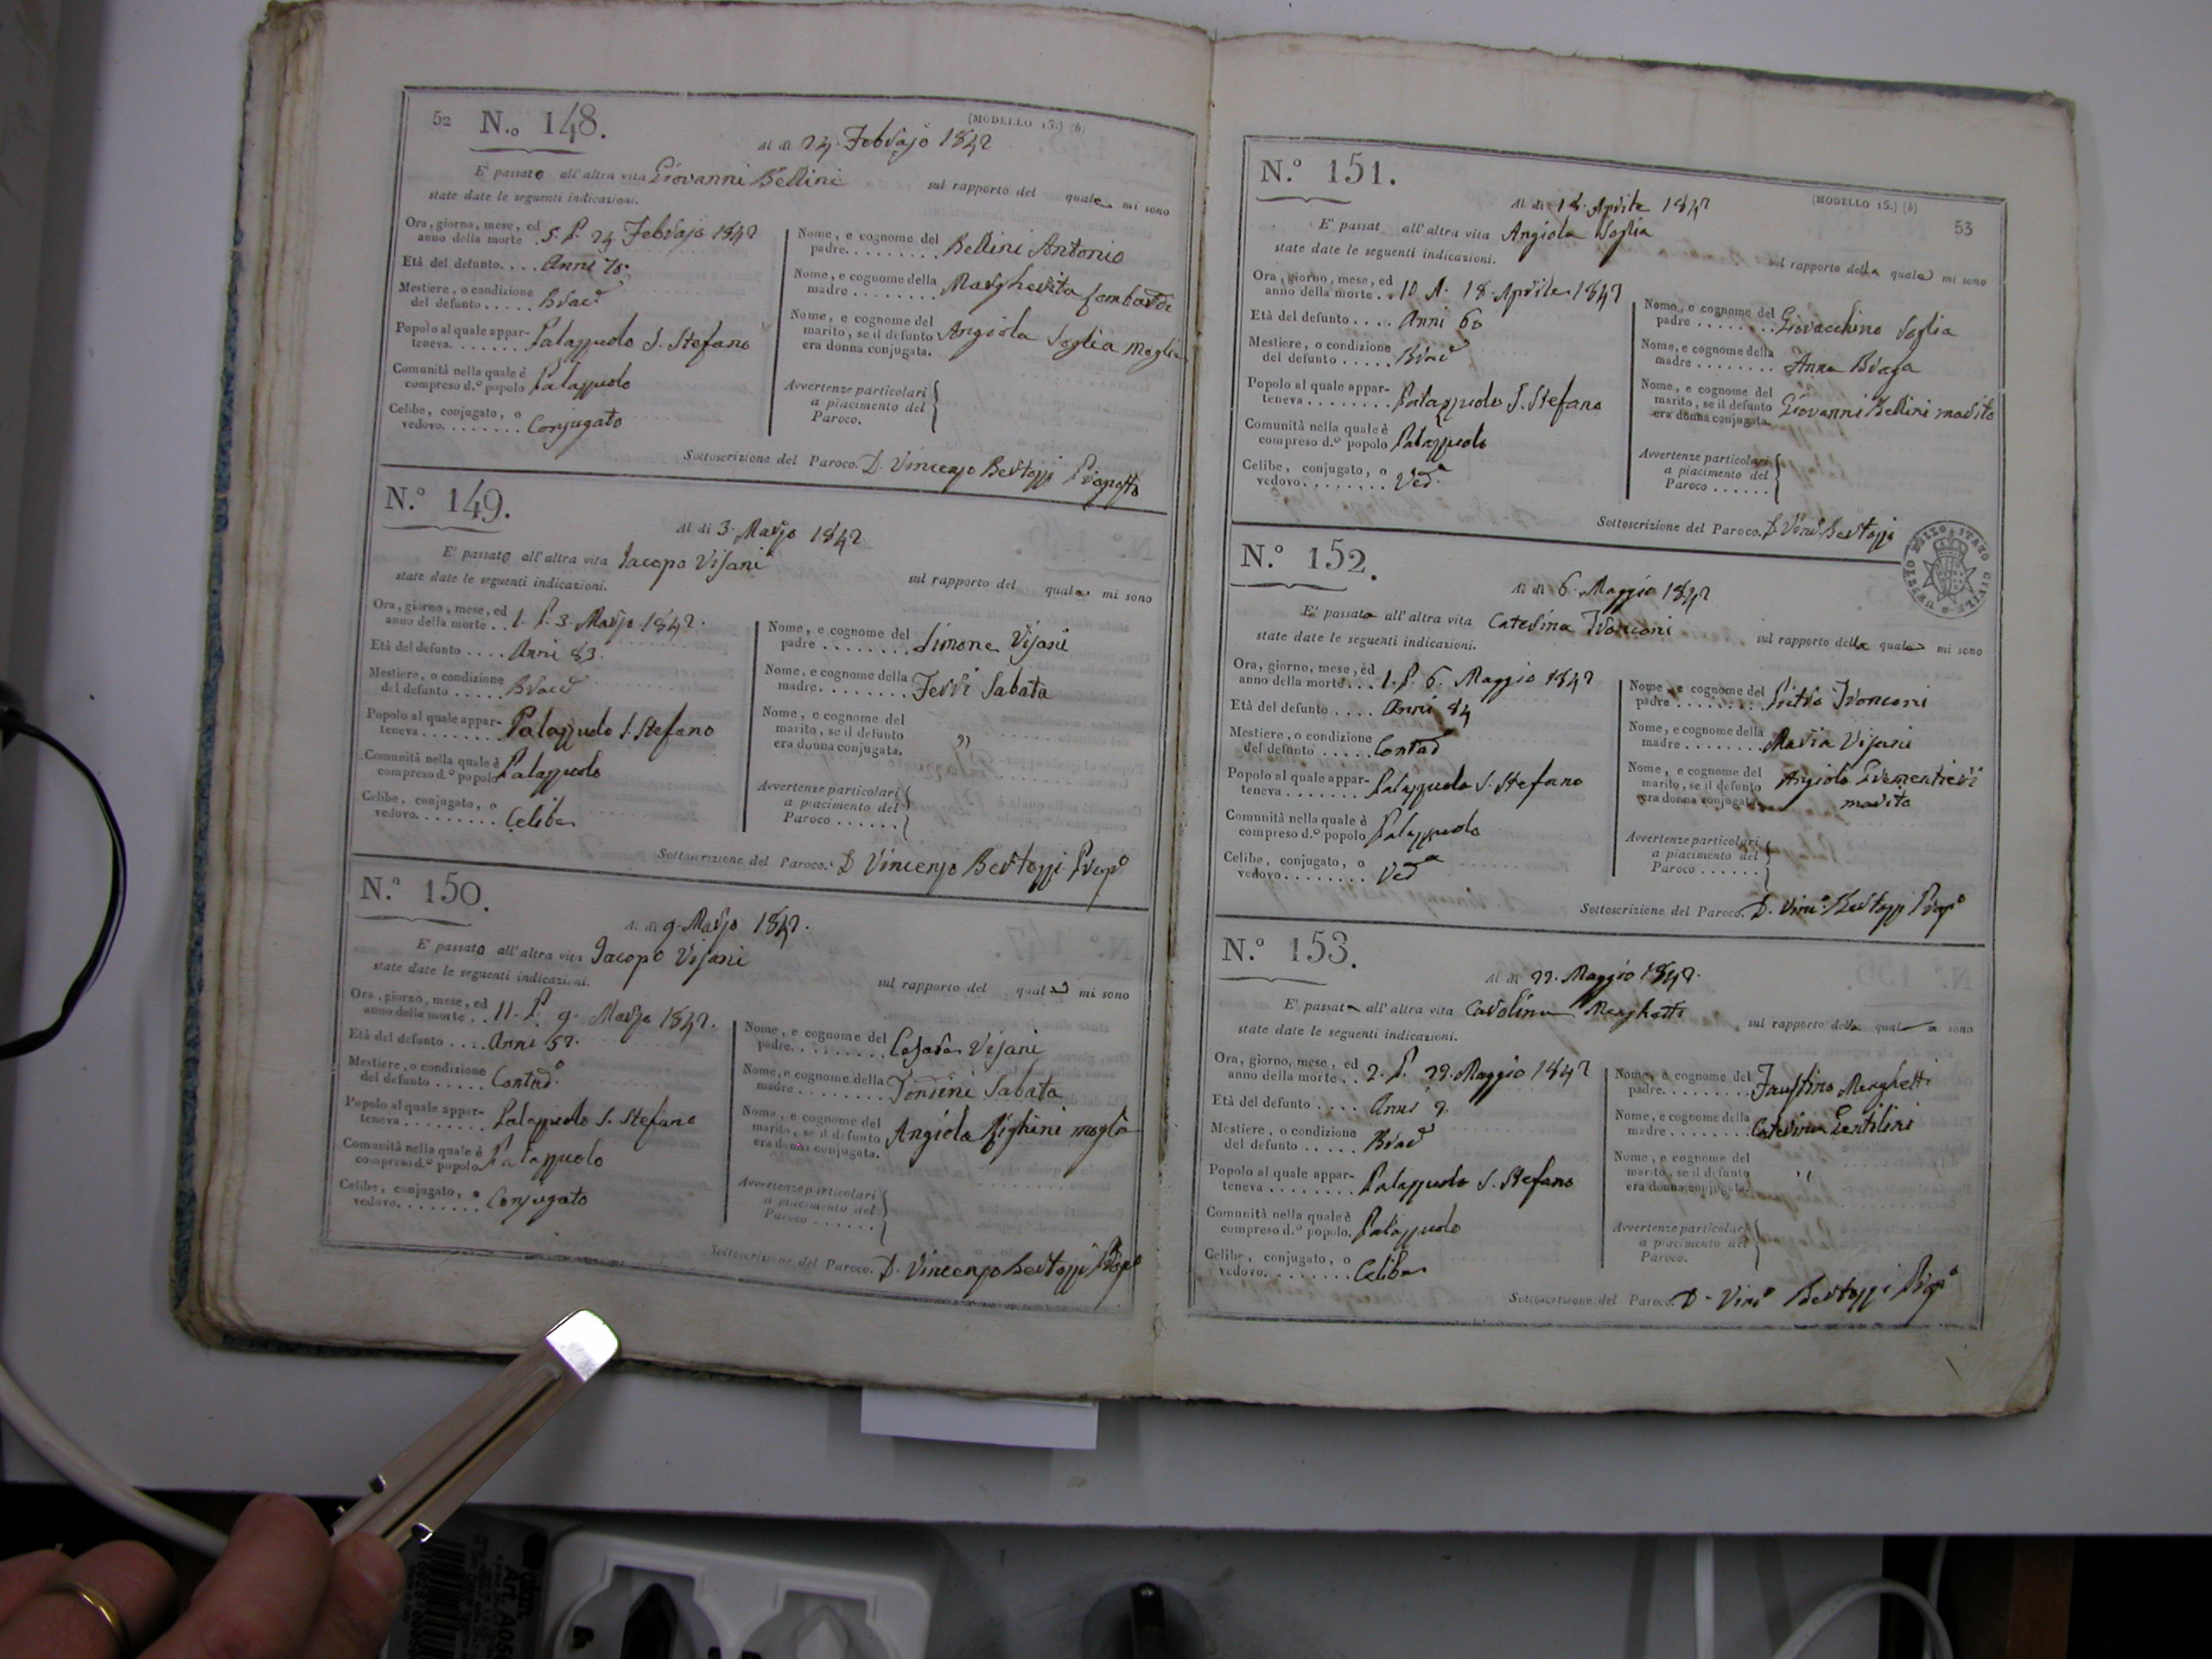 52 N.o 148. (MODELLO 15.) (b)
Al dì 24. Febrajo 1842
E' passato all'altra vita Giovanni Bellini sul rapporto del quale mi sono
state date le seguenti indicazioni.
Ora, giorno, mese, ed
anno della morte . 5. P. 24 Febrajo 1842
Età del defunto. . . . Anni 78.
Mestiere, o condizione
del defunto . . . . . Brac
Popolo al quale appar-
teneva. . . . . . . Palazzuolo S. Stefano
Comunità nella quale è
compreso d.º popolo Palazzuolo
Celibe, conjugato, o
vedovo. . . . . . . . Conjugato
Nome, e cognome del
padre. . . . . . . . . Bellini Antonio
Nome, e cognome della
madre . . . . . . . . Margherita Lombardi
Nome, e cognome del
marito, se il defunto Angiola Soglia Moglie
era donna conjugata.
Avvertenze particolari
a piacimento del
Paroco.
Sottoscrizione del Paroco. D. Vincenzo Bertozzi
N.º 149.
Al dì 3. Marzo 1842
E' passato all'altra vita Jacopo Visani sul rapporto del quale mi sono
state date le seguenti indicazioni.
Ora, giorno, mese, ed
anno della morte . . 1. P. 3. Marzo 1842.
Età del defunto . . . . Anni 83.
Mestiere, o condizione
del defunto . . . . . Brac
Popolo al quale appar-
teneva . . . . . . . . Palazzuolo S. Stefano
Comunità nella quale è
compreso d.º popolo Palazzuolo
Celibe, conjugato, o
vedovo. . . . . . . . Celibe
Nome, e cognome del
padre . . . . . . . . Simone Visani
Nome, e cognome della
madre. . . . . . . . . Ferri Sabata
Nome, e cognome del
marito, se il defunto "
era donna conjugata.
Avvertenze particolari
a piacimento del
Paroco . . . . . .
Sottoscrizione del Paroco. D Vincenzo Bertozzi Prop.º
N.º 150.
Al dì 9. Marzo 1842.
E' passato all'altra vita Jacopo Visani sul rapporto del quale mi sono
state date le seguenti indicazioni.
Ora, giorno, mese, ed
anno della morte . . 11. P. 9. Marzo 1842.
Età del defunto . . . . Anni 52.
Mestiere, o condizione
del defunto . . . . . Contad.º
Popolo al quale appar-
teneva . . . . . . . . Palazzuolo S. Stefano
Comunità nella quale è
compreso d.º popolo Palazzuolo
Celibe, conjugato, o
vedovo. . . . . . . . Conjugato
Nome, e cognome del
padre. . . . . . . . . Cesare Visani
Nome, e cognome della
madre . . . . . . . . Sabata
Nome, e cognome del
marito, se il defunto Angiola Righini moglie
era donna conjugata.
Avvertenze particolari
a piacimento del
Paroco . . . . . .
Sottoscrizione del Paroco. D. Vincenzo Bertozzi Prop.º
N.º 151. (MODELLO 15.) (b) 53
Al dì 18. Aprile 1842
E' passat all'altra vita Angiola Soglia sul rapporto della quale mi sono
state date le seguenti indicazioni.
Ora, giorno, mese, ed
anno della morte . . 10 A. 18. Aprile 1842
Età del defunto . . . . Anni 60
Mestiere, o condizione
del defunto . . . . . Brac
Popolo al quale appar-
teneva . . . . . . . . Palazzuolo S. Stefano
Comunità nella quale è
compreso d.º popolo Palazzuolo
Celibe, conjugato, o
vedovo. . . . . . . . Ved.a
Nome, e cognome del
padre . . . . . . . . Giovacchino Soglia
Nome, e cognome della
madre . . . . . . . . Anna Braga
Nome, e cognome del
marito, se il defunto Giovanni Bellini marito
era donna conjugata.
Avvertenze particolari
a piacimento del
Paroco . . . . . .
Sottoscrizione del Paroco. D. Vinc.º Bertozzi
N.º 152.
Al dì 6. Maggio 1842
E' passata all'altra vita Caterina Tronconi sul rapporto della quale mi sono
state date le seguenti indicazioni.
Ora, giorno, mese, ed
anno della morte . . . 1. P. 6. Maggio 1842
Età del defunto . . . . Anni 84
Mestiere, o condizione
del defunto . . . . . Contad
Popolo al quale appar-
teneva . . . . . . . . Palazzuolo S. Stefano
Comunità nella quale è
compreso d.º popolo Palazzuolo
Celibe, conjugato, o
vedovo. . . . . . . . Ved.a
Nome, e cognome del
padre . . . . . . . . Pietro Tronconi
Nome, e cognome della
madre . . . . . . . . Maria Visani
Nome, e cognome del
marito, se il defunto Angiolo
era donna conjugata. marito
Avvertenze particolari
a piacimento del
Paroco . . . . . .
Sottoscrizione del Paroco. D. Vinc.º Bertozzi Prop.º
N.º 153.
Al dì 22. Maggio 1842.
E' passata all'altra vita Carolina Menghetti sul rapporto della quale mi sono
state date le seguenti indicazioni.
Ora, giorno, mese, ed
anno della morte . . 2. P. 22. Maggio 1842
Età del defunto . . . . Anni 2.
Mestiere, o condizione
del defunto . . . . . Brac
Popolo al quale appar-
teneva . . . . . . . . Palazzuolo S. Stefano
Comunità nella quale è
compreso d.º popolo. Palazzuolo
Celibe, conjugato, o
vedovo. . . . . . . . Celibe
Nome, e cognome del
padre. . . . . . . . . Faustino Menghetti
Nome, e cognome della
madre . . . . . . . Caterina Gentilini
Nome, e cognome del
marito, se il defunto "
era donna conjugata.
Avvertenze particolari
a piacimento del
Paroco.
Sottoscrizione del Paroco. D. Vinc.º Bertozzi Prop.º